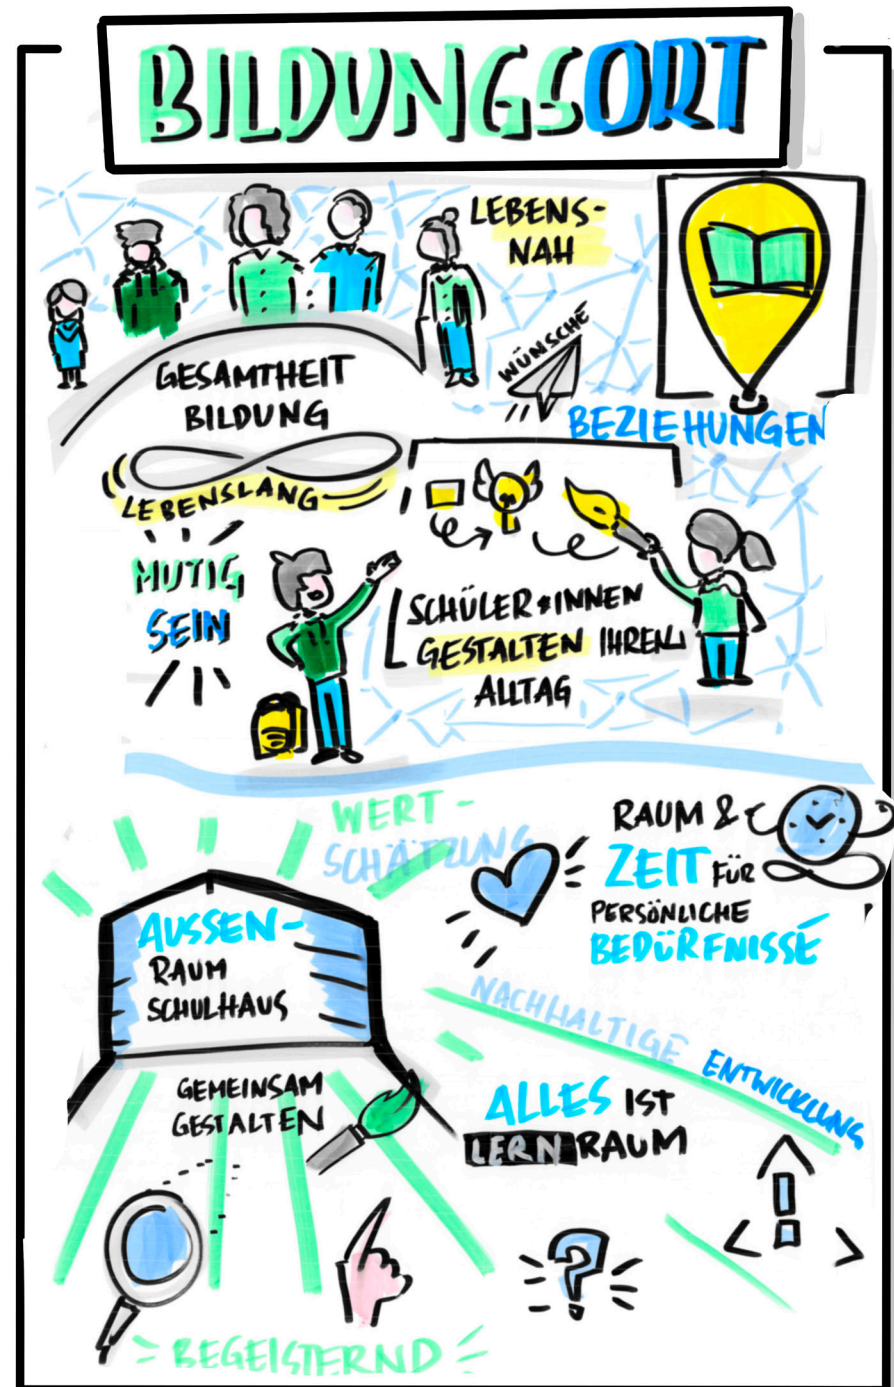 BILDUNGSORT
LEBENS-
NAH
WÜNSCHE
GESAMTHEIT
BILDUNG
BEZIEHUNGEN
LEBENSLANG
MUTIG
SEIN
SCHÜLER*INNEN
GESTALTEN IHREN
ALLTAG
WERT-
SCHÄTZUNG
RAUM &
ZEIT FÜR
PERSÖNLICHE
BEDÜRFNISSE
AUSSEN-
RAUM
SCHULHAUS
NACHHALTIGE ENTWICKLUNG
GEMEINSAM
GESTALTEN
ALLES IST
LERNRAUM
?
BEGEISTERND